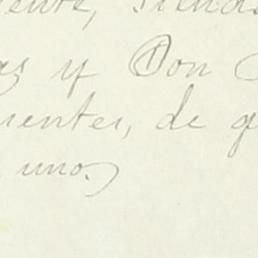 ente, siendo
as y Don
rientes, de q
uno.